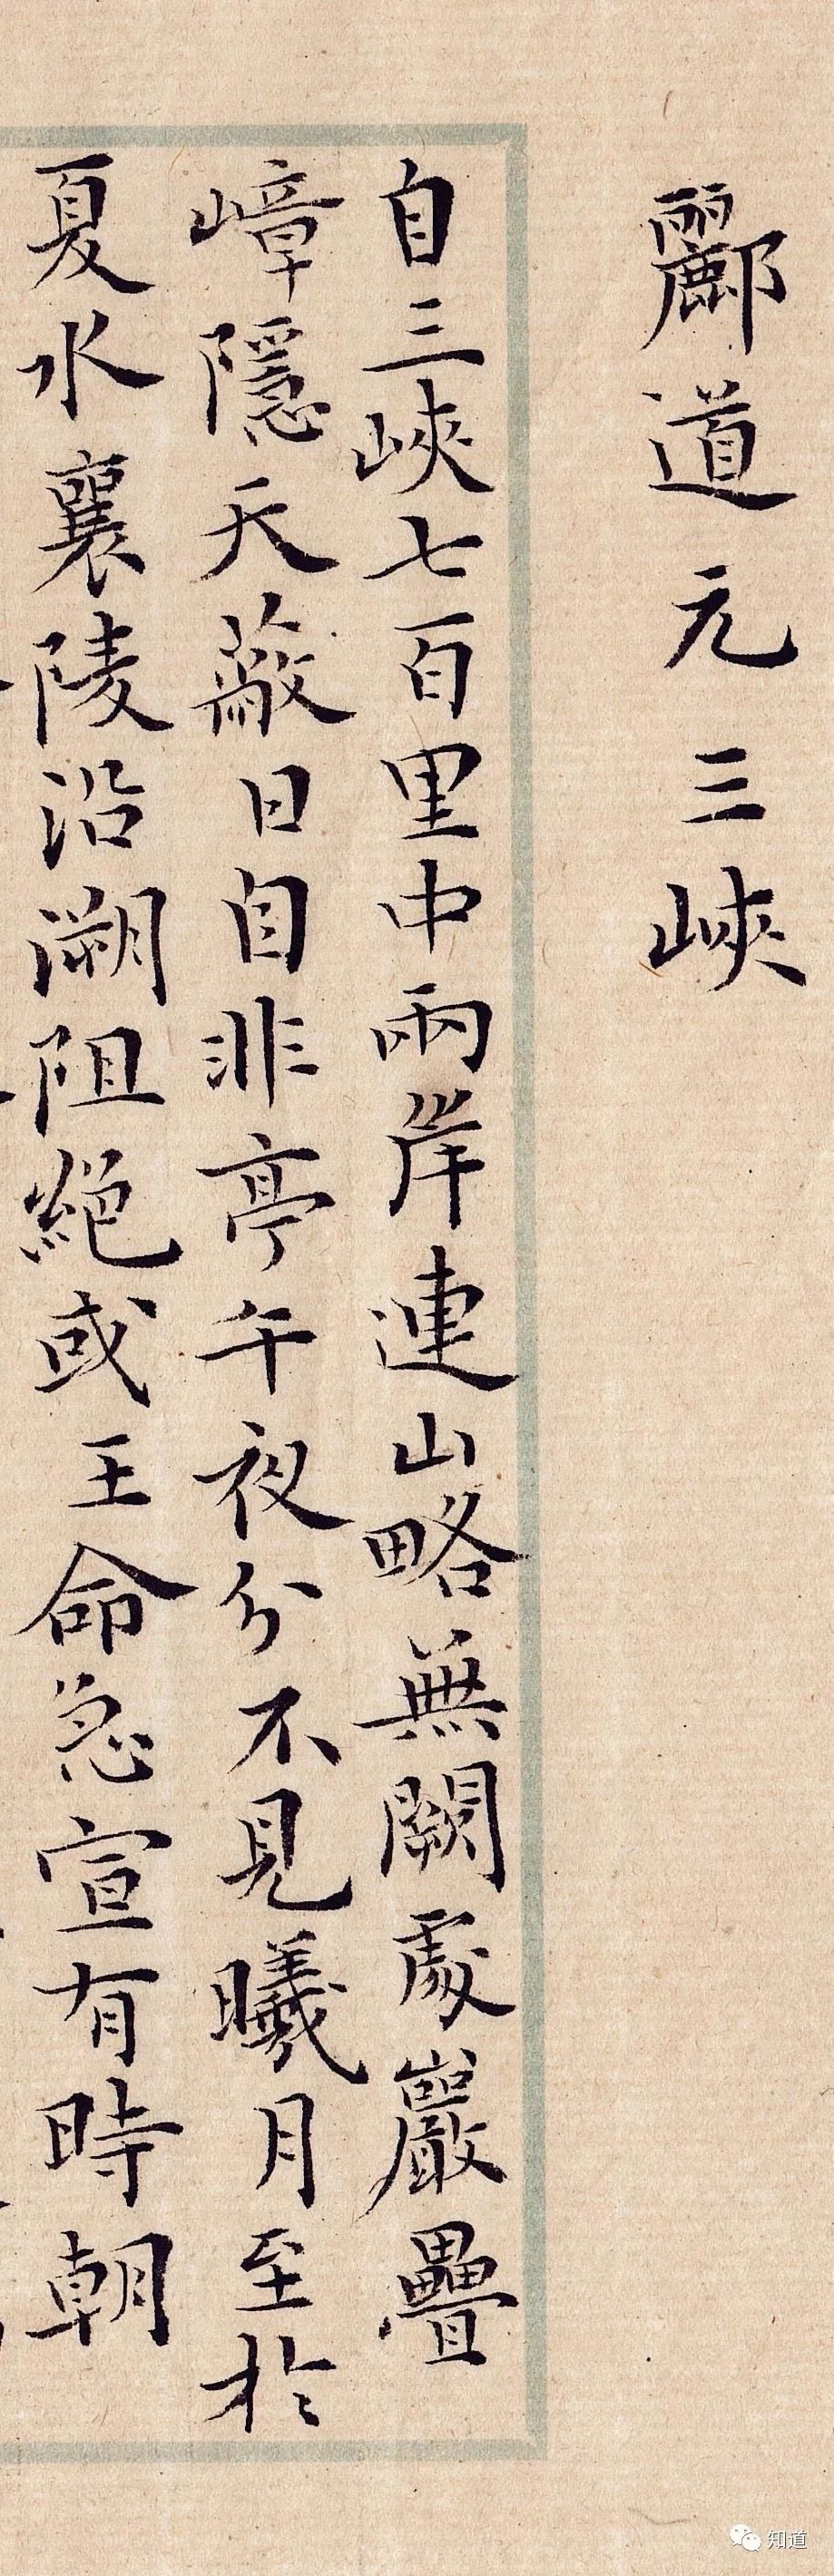 酈道元三峽
自三峽七百里中兩岸連山略無闕處巖疊
嶂隱天蔽日自非亭午夜分不見曦月至於
夏水襄陵沿溯阻絕或王命急宣有時朝
知道